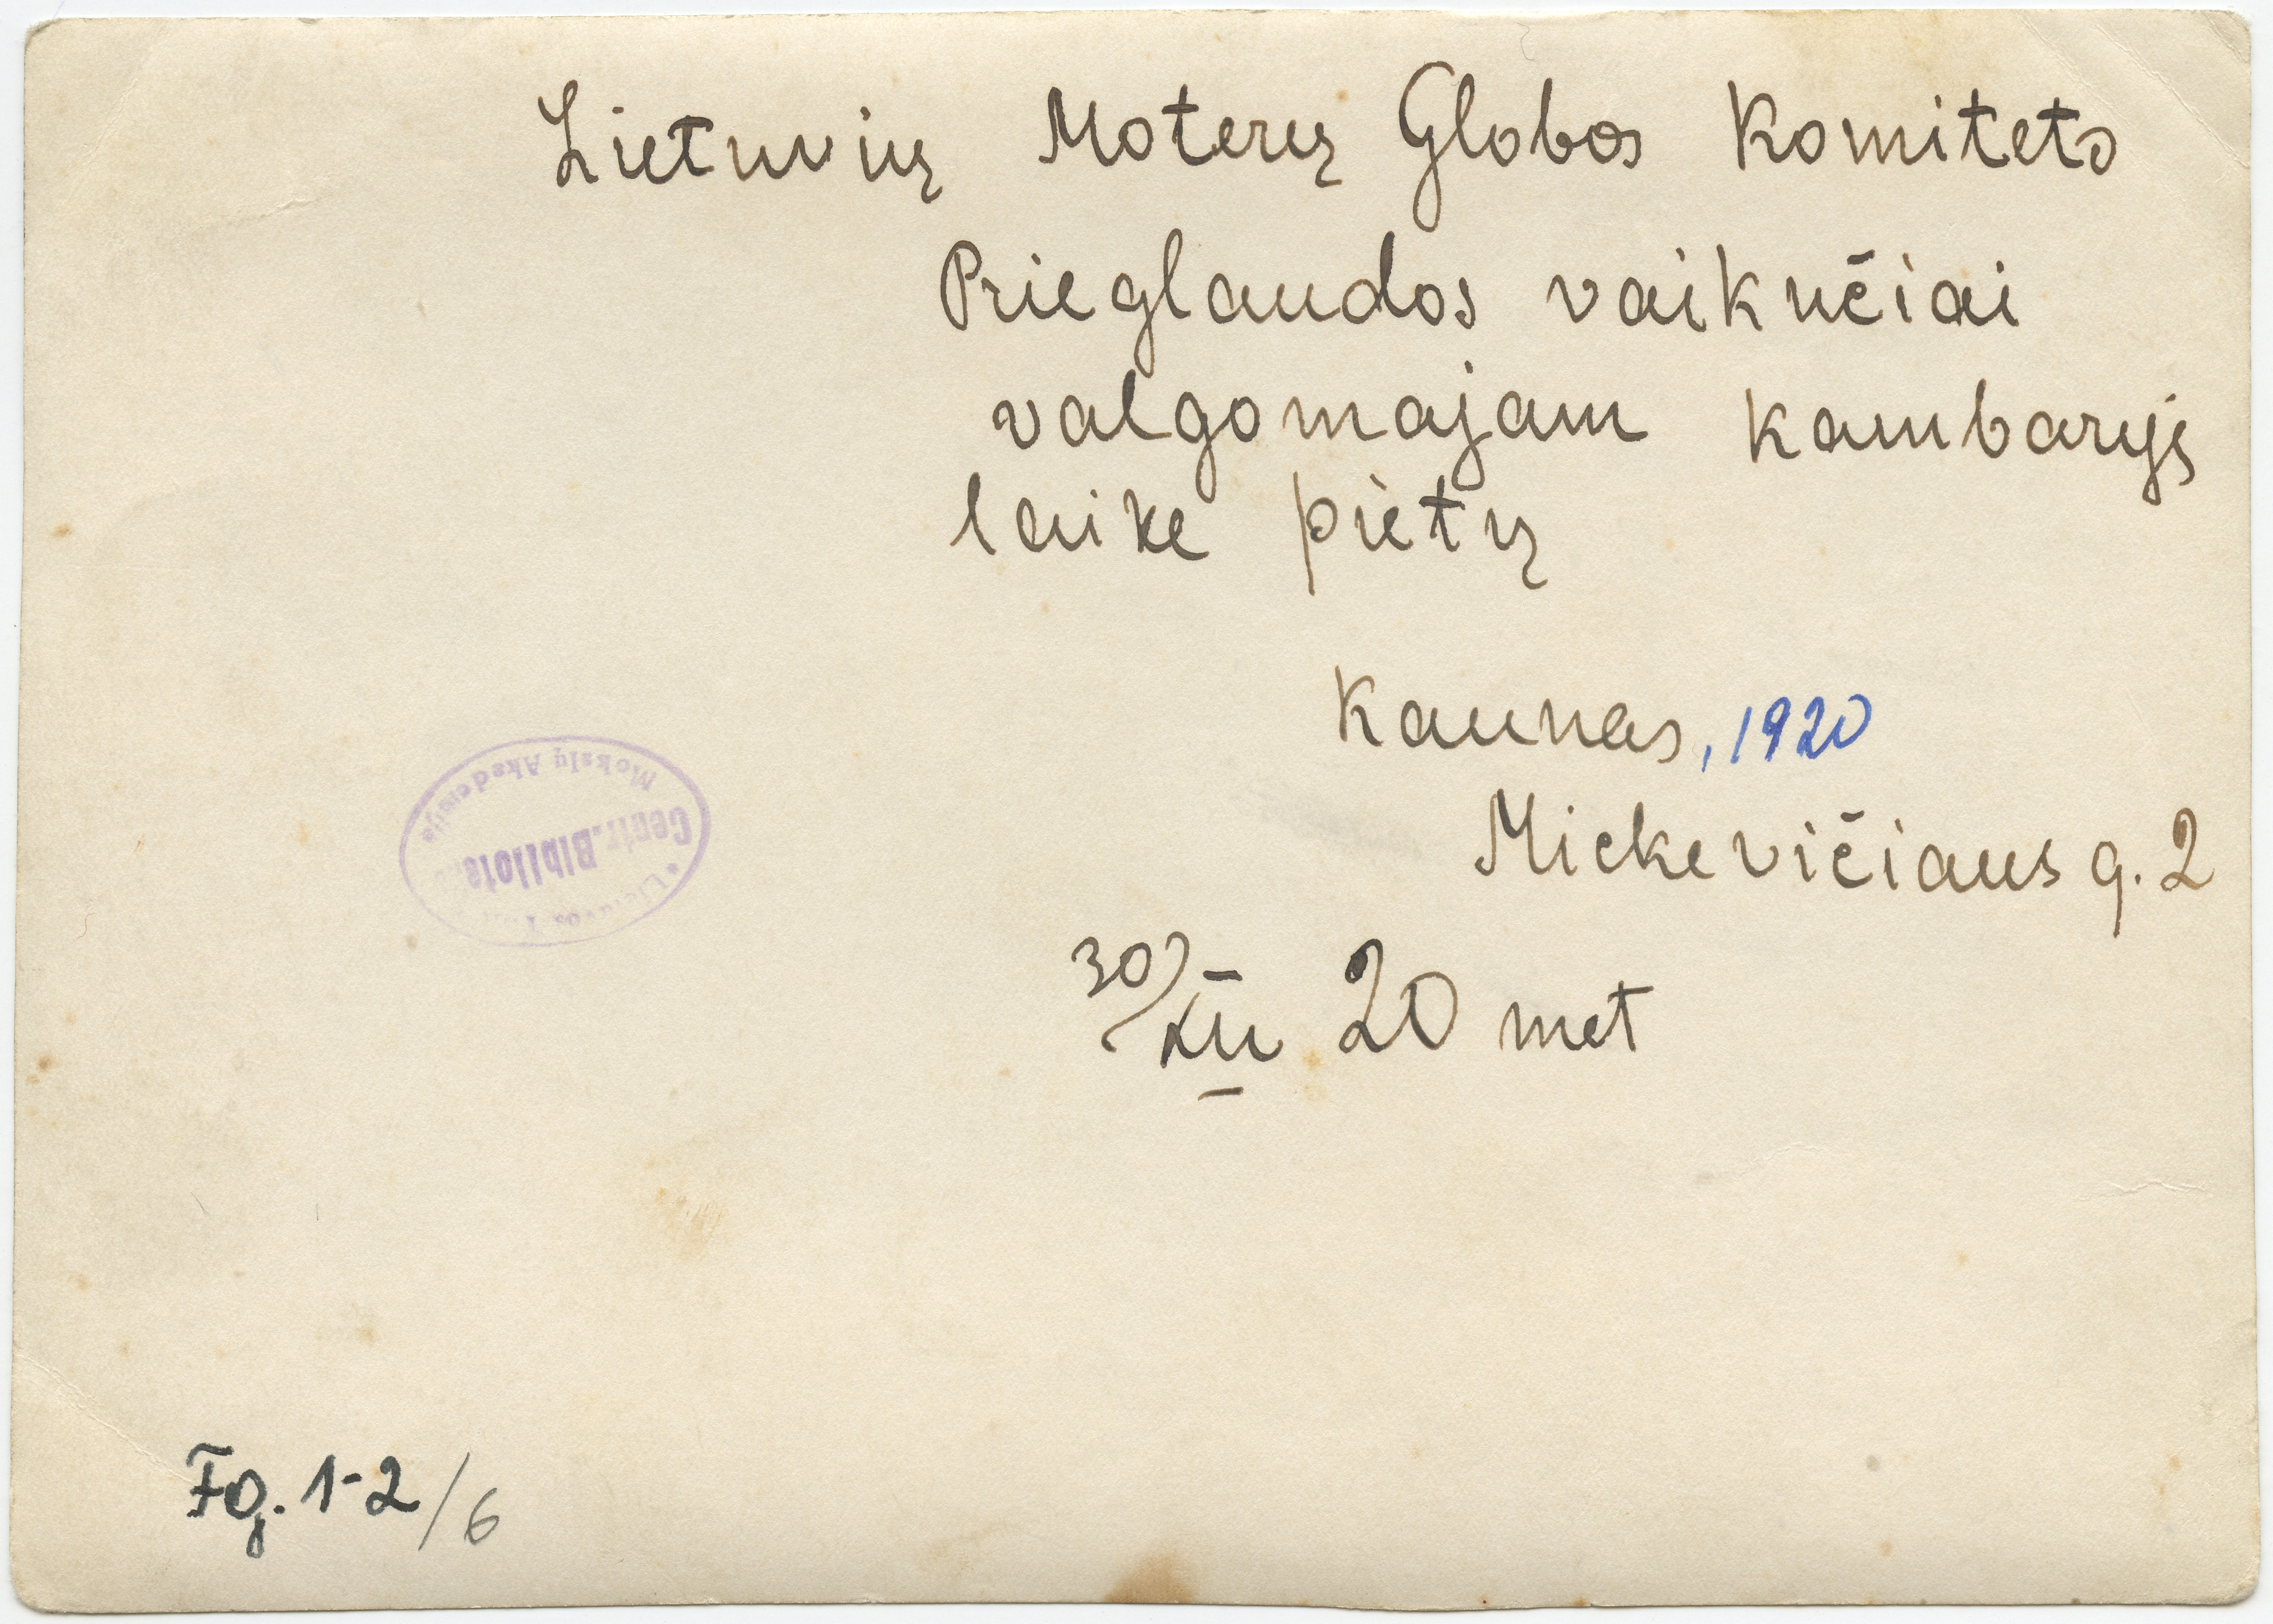 Lietuvių Moterų Globos Komiteto
Prieglaudos vaikučiai
valgomajam kambaryj
laike pietų
Kaunas, 1920
Mickevičiaus g. 2
30/XII 20 met
Mokslų Akademija
Centr. Bibliote
Lietuvos
Fg. 1-2/6